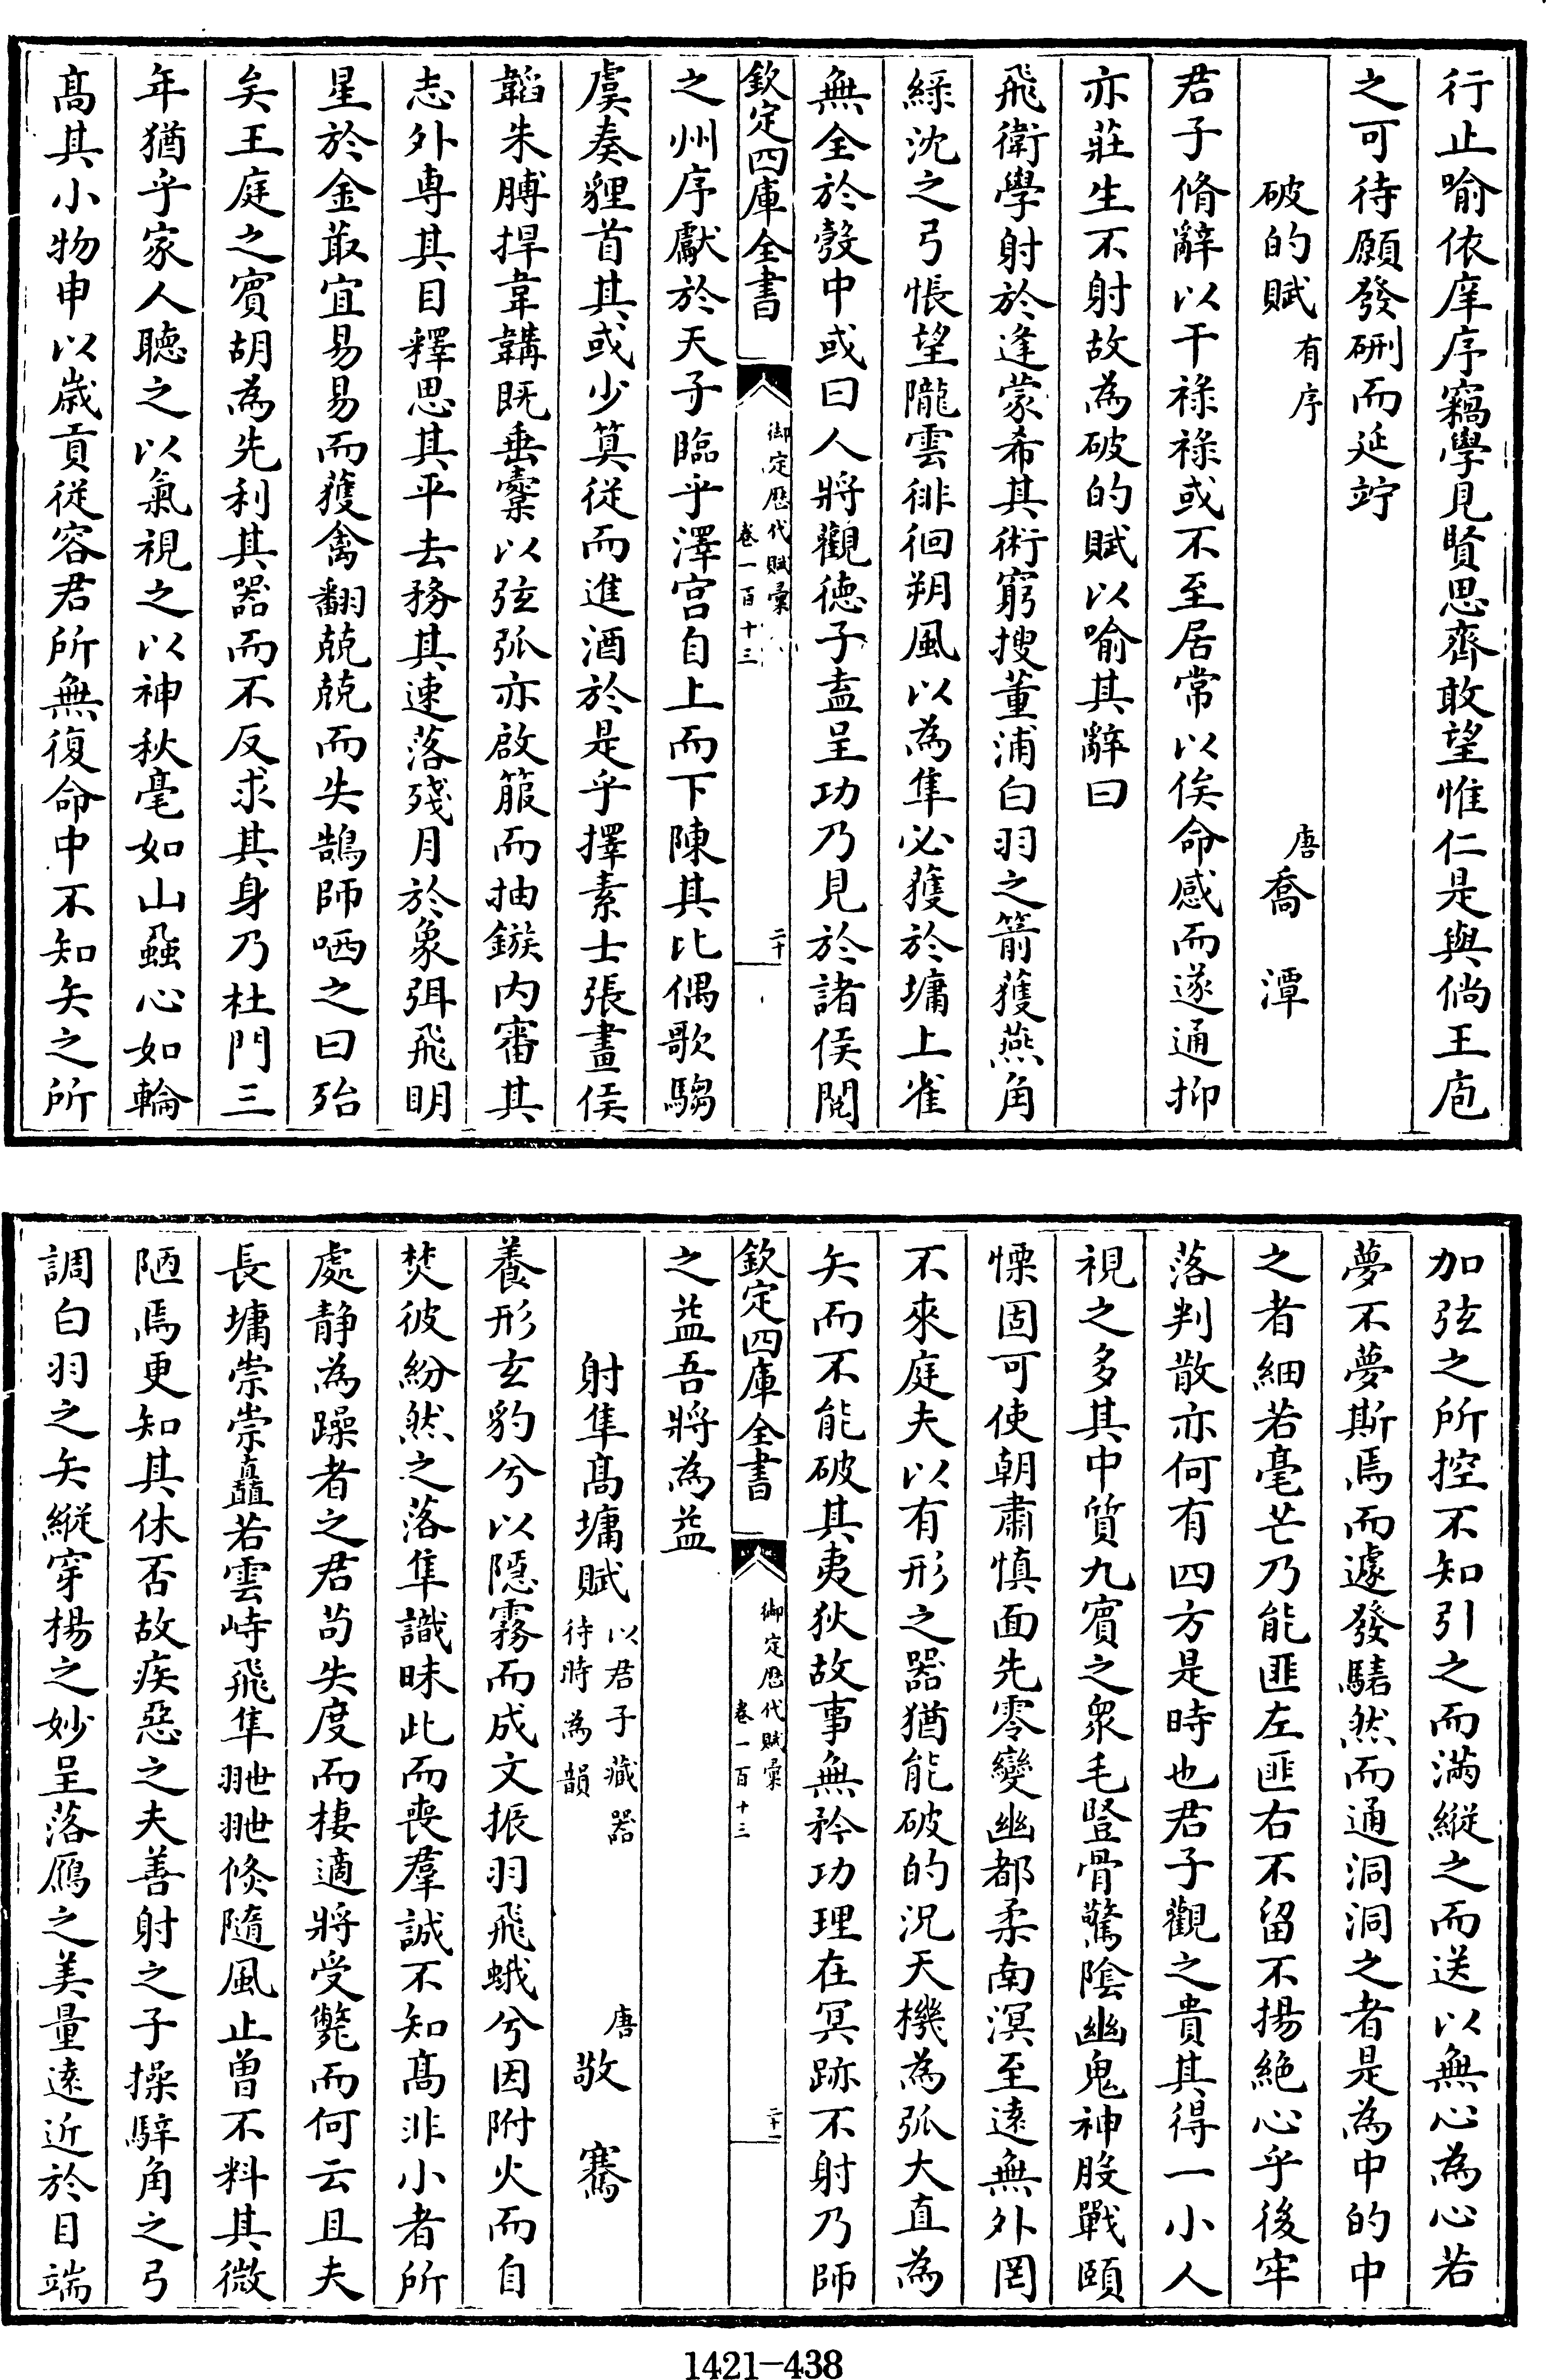 行止喻依庠序竊學見賢思齊敢望惟仁是與倘王庖
之可待願發硎而延竚
破的賦有序　唐喬潭
君子脩辭以干祿祿或不至居常以俟命感而遂通抑
亦莊生不射故為破的賦以喻其辭曰
飛衛學射於逢蒙希其術窮搜董浦白羽之箭獲燕角
綠沈之弓悵望隴雲徘徊朔風以為隼必獲於墉上雀
無全於彀中或曰人將觀德子盍呈功乃見於諸侯閱
欽定四庫全書　御定歷代賦彙卷一百十三　二十
之州序獻於天子臨乎澤宫自上而下陳其比偶歌騶
虞奏貍首其或少筭從而進酒於是乎擇素士張畫侯
韜朱膊捍韋韝既垂櫜以弦弧亦啟箙而抽鏃内審其
志外專其目釋思其平去務其速落殘月於象弭飛明
星於金菆宜易易而獲禽翻兢兢而失鵠師哂之曰殆
矣王庭之賓胡為先利其器而不反求其身乃杜門三
年猶乎家人聽之以氣視之以神秋毫如山蝨心如輪
髙其小物申以歲貢從容君所無復命中不知矢之所
加弦之所控不知引之而滿縱之而送以無心為心若
夢不夢斯焉而遽發騞然而通洞洞之者是為中的中
之者細若毫芒乃能匪左匪右不留不揚絶心乎後牢
落判散亦何有四方是時也君子觀之貴其得一小人
視之多其中質九賓之衆毛豎骨驚陰幽鬼神股戰頤
慄固可使朝肅慎面先零變幽都柔南溟至遠無外罔
不來庭夫以有形之器猶能破的況天機為弧大直為
矢而不能破其夷狄故事無矜功理在冥跡不射乃師
欽定四庫全書　御定歷代賦彙卷一百十三　二十一
之益吾將為益
射隼髙墉賦以君子藏器待時為韻　唐敬騫
養形玄豹兮以隱霧而成文振羽飛蛾兮因附火而自
焚彼紛然之落隼識昧此而喪羣誠不知髙非小者所
處静為躁者之君茍失度而棲適將受斃而何云且夫
長墉崇崇矗若雲峙飛隼翀翀倏隨風止曽不料其微
陋焉更知其休否故疾惡之夫善射之子操騂角之弓
調白羽之矢縱穿楊之妙呈落鴈之美量遠近於目端
1421-438